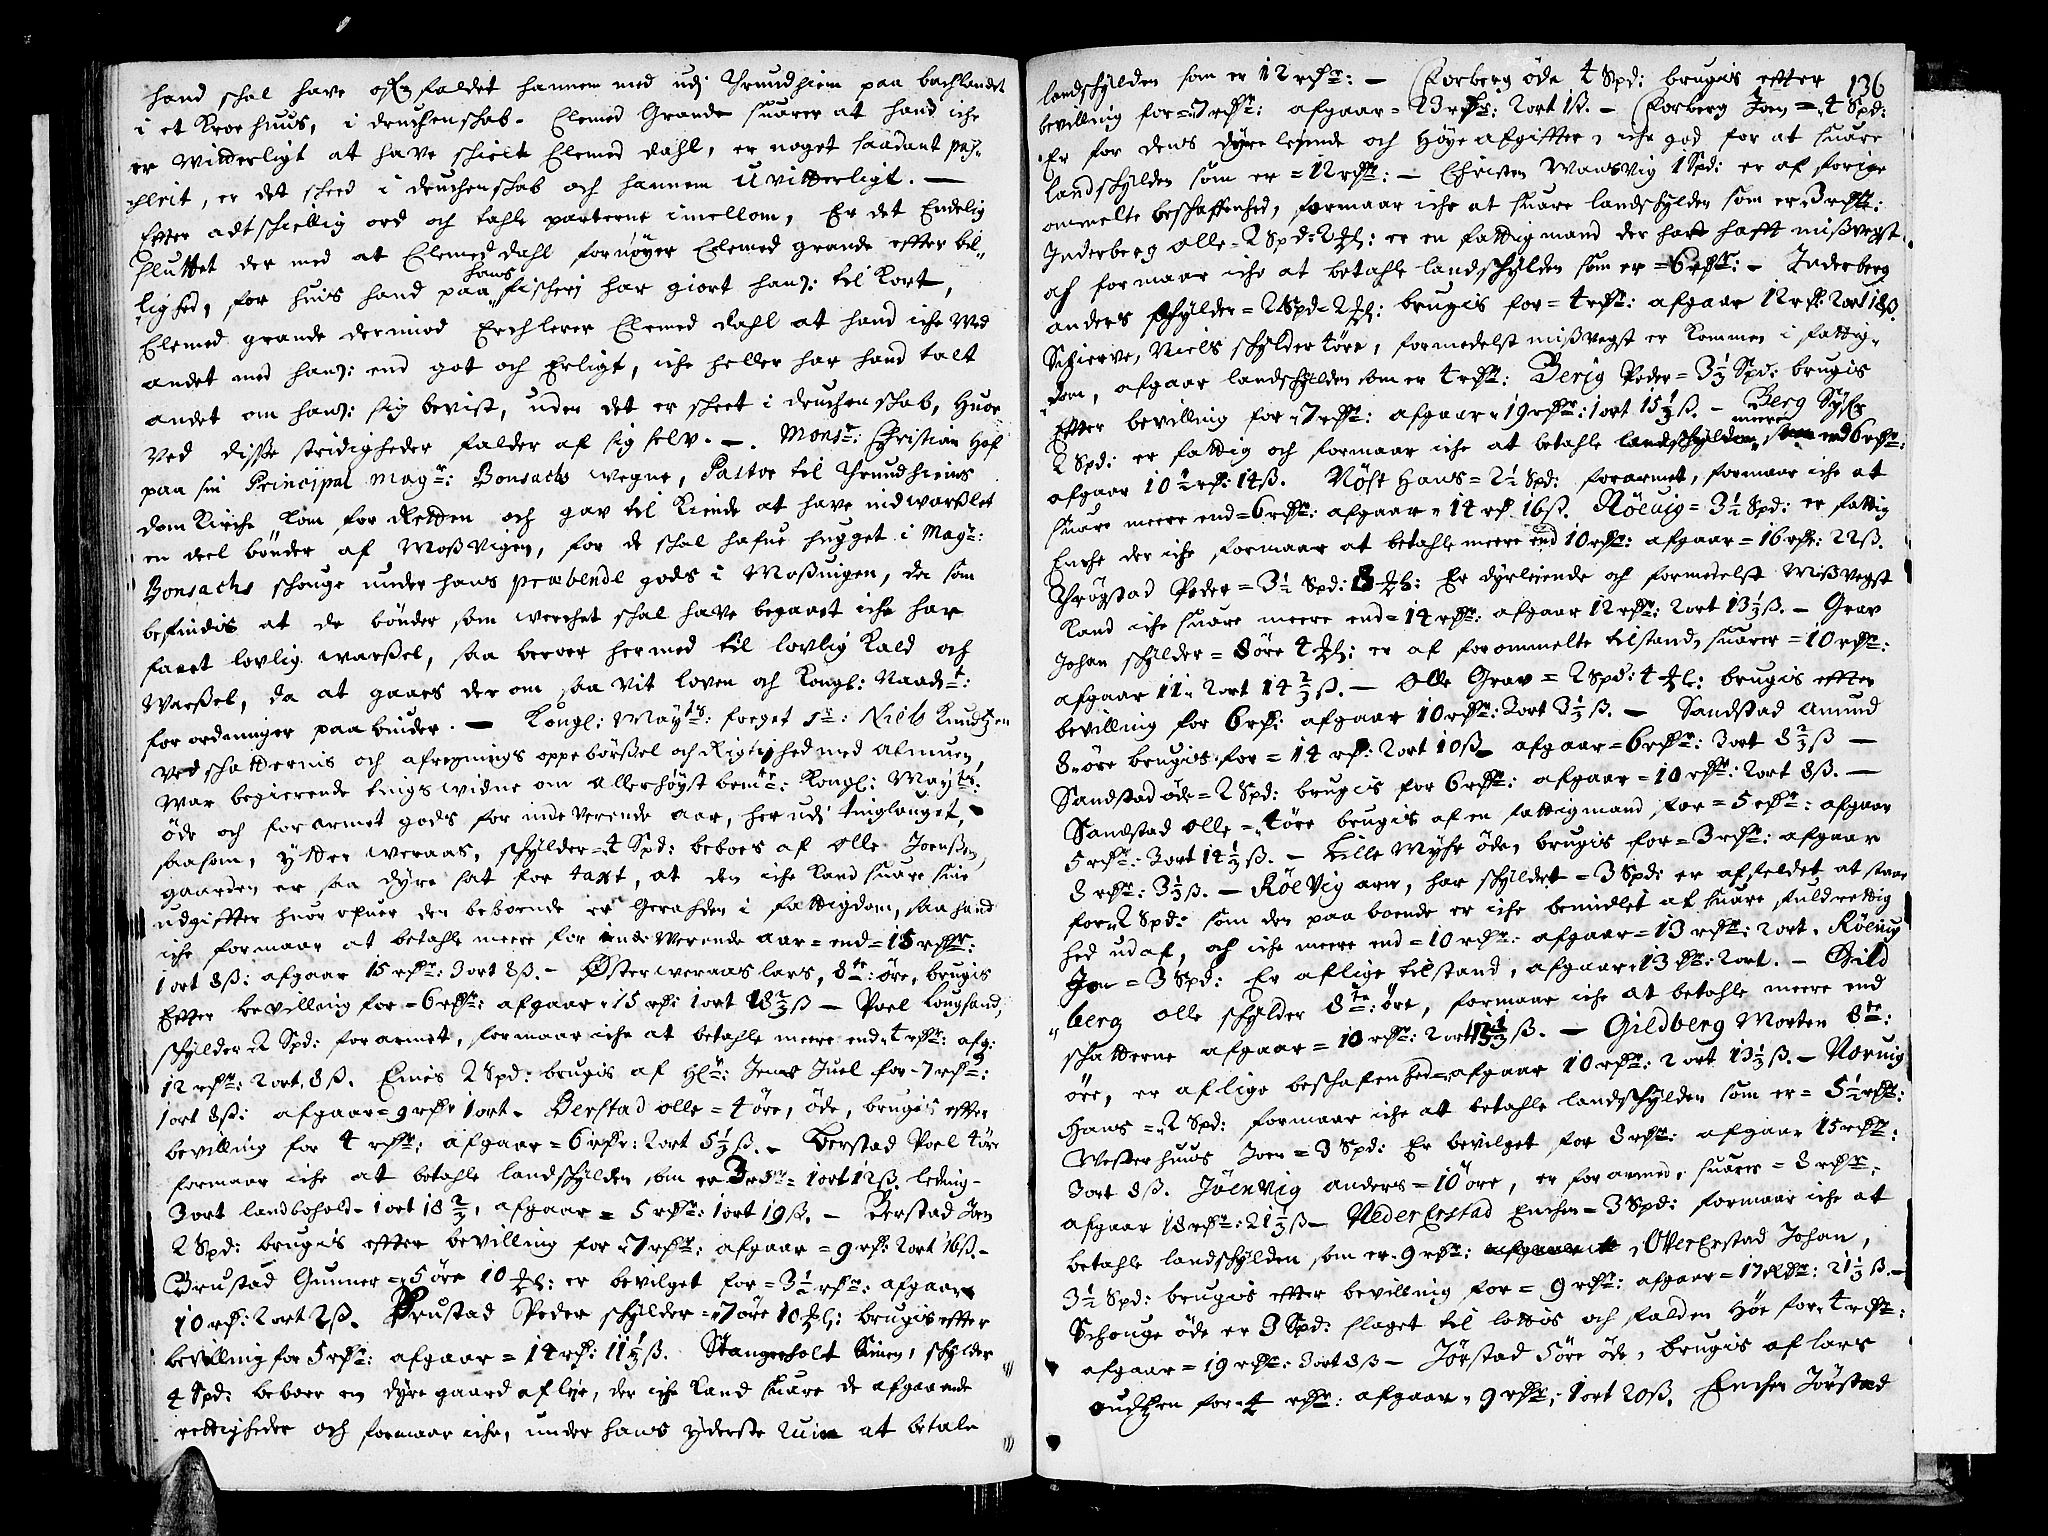 hand schal have ofverfaldet hannem med udj Thrundhiem paa bachlandet
i et Kroehuus, i druchenschab. Elemed Grande suarer at hand iche
er Witterligt at have schielt Elemed dahl, er noget saadant pas-
serit, er det scheed i druchenschab och hannem Uvitterligt. —
Efter adtschiellig ord och tahle parterne imellom, Er det Endelig
sluttet der med at Elemed dahl fornøyer Elemed grande efter bil-
lighed, for huis hand paa hans fischerj har giort hans: til Kort,
Elemed grande derimod Erchlerer Elemed dahl at hand iche Wed
andet med hans: end got och Erligt, iche heller har hand talt
andet om hans: sig bevist, uden det er scheet i druchenschab, huor
Ved disse stridigheder falder af sig selv. —. Monsr: Christian Hof
paa sin Principal Magr: Bonsachs wegne, Pastor til Thrundhiems
domKirche Kom for Retten och gav til Kiende at have indwarslet
en deel bønder af Mossvigen, for de schal hafue hugget i Magr:
Bonsachs schouge under hans præbende gods i Mossuigen, da som
befindis at de bønder som werchet schal have begaaet iche har
faaet lovlig warssel, saa beroer hermed til lovlig Kald och
Warssel, da at gaaes der om saa vit loven och Kongl: Naadst:
forordninger paabinder. — Kongl: Mayts: foeget Sr: Niels Knudtzen
Ved schatternis och afregnings oppebørssel och Rigtighed med Almuen,
War begierende tingswidne om allerhøyst bemte: Kongl: Mayts:
øde och forarmet gods for indeverende aar, her udj tinglauget,
saasom, ytter weraas, schylder = 4 Spd: beboes af Olle Joenssen,
gaarden er saa dyre sat for taxt, at den iche Kand suare sine
udgiffter huor ofuer den beboende er Gerahden i fattigdom, saa hand
iche formaar at betahle meere for indeWerende aar = end = 15 rixdr:
1 ort 8ß: afgaar 15 rixdr: 3 ort 8ß. — Øster weraas lars, 8te: øre, brugis
Efter bevilling for = 6 rixdr: afgaar 15 rixd: 1 ort 18⅔ß — Poel Longsand,
schylder 2 Spd: forarmet, formaar iche at betahle meere end 4 rixdr: afg:
12 rixdr: 2 ort. 8ß. Einis 2 Spd: brugis af Hlr: Jens Juel for = 7 rixdr:
1 ort 8ß: afgaar = 9 rixdr 1 ort. Berstad olle = 4 øre, øde, brugis efter
bevilling for 4 rixdr: afgaar = 6 rixdr: 2 ort 5⅓ß. — Berstad Poel 4 øre
formaar iche at betahle landschylden som er 3 rdr = 1 ort 12ß. leding-
3 ort landbohold = 1 ort 18⅔, afgaar = 5 rixdr: 1 ort 19ß. — Berstad Joen
2 Spd: brugis efter bevilling for 7 rixdr: afgaar = 9 rixd: 2 ort 16ß. —
Brustad Gunner = 5 øre 10 mkl: er bevilget for = 3½ rixdr: afgaar
10 rixd: 2 ort 2ß. Brustad Peder schylder = 7 øre 10 mkl: brugis efter
bevilling for 5 rixdr: afgaar = 14 rixd: 11⅓ß. Stangerholt Simen, schylder
4 Spd: beboer en dyre gaard af leje, der iche Kand suare de afgaaende
rettigheder och formaar iche, under hans yderste ruin at betale
136
landschylden som er 12 rixdr: — Forberg øde 4 Spd: brugis efter
bevilling for = 7 rixdr: afgaar = 23 rixdr: 2 ort 1ß. — Forberg Joen = 4 Spd:
Er for dens dyre leyende och Høye afgiffter iche god for at suare
landschylden som er = 12 rixdr: — Christen Wansvig 1 Spd: er af forige
ommelte beschaffenhed, formaar iche at suare landschylden som er 3 rixdr:
Inderberg Olle = 2 Spd: 2 mkl: er en fattig mand der haft hafft missvext
och formaar iche at betahle landschylden som er = 6 rixdr: — Inderberg
anders schylder = 2 Spd 2 mkl: brugis for = 4 rixdr: afgaar 12 rixd: 2 ort 18ß.
Schierve, Niels schylder 4 øre, formedelst missvext er Kommen i fattig-
dom, afgaar landschylden som er 4 rixdr: Berig Peder = 3½ Spd: brugis
Efter bevilling for 7 rixdr: afgaar 19 rixdr: 1 ort 15⅓ß. — Berg Syfer
2 Spd: er fattig och formaar iche at betahle meere end 6 rixdr:
afgaar 10½ rixd: 14ß. Røst Hans = 2½ Spd: forarmet, formaar iche at
suare meere end = 6 rixdr: afgaar 14 rixd 16ß. Røluig = 3½ Spd: er fattig
Enche der iche formaar at betahle meere end 10 rixdr: afgaar = 16 rixd: 22ß.
Thrøgstad Peder = 3½ Spd: 8 mkl: Er dyrleiende och formedelst Missvegt
Kand iche suare meere end = 14 rixdr: afgaar 12 rixdr: 2 ort 13⅓ß. — Grav
Johan schylder = 8 øre 4 mkl: er af forommelte tilstand, suarer = 10 rixdr:
afgaar 11 2 ort 14⅔ß. — Olle Grav = 2 Spd: 4 mkl: brugis efter
bevilling for 6 rixd: afgaar 10 rixdr: 2 ort 3⅓ß. — Sandstad Amund
8 øre brugis for = 14 rixd: 2 ort 10ß afgaar = 6 rixdr: 3 ort 8⅔ß —
Sandstad øde = 2 Spd: brugis for 6 rixdr: afgaar = 10 rixdr: 2 ort 8ß. —
Sandstad Olle = 4 øre brugis af en fattigmand for = 5 rixdr: afgaar
5 rixdr: 3 ort 14⅓ß. — Lille Myhr øde, brugis for = 3 rixdr: afgaar
8 rixdr: 3⅓ß. — Røluig arne, har schyldet = 3 Spd: er affeldet at staae
for 2 Spd: som den paaboende er iche bemidlet at suare fuldrettig
hed udaf, och iche meere end = 10 rixdr: afgaar = 13 rixdr: 2 ort. Røluig
Jon = 3 Spd: Er aflige tilstand, afgaar 13 rdr: 2 ort. — Gild
berg olle schylder 8te: øre, formaar iche at betahle meere end
schatterne afgaar = 10 rixdr: 2 ort 13⅓ß. — Gildberg Morten 8te:
øre, er aflige beschafenhed = afgaar 10 rixdr: 2 ort 13⅓ß. — Noruig
Hans = 2 Spd: formaar iche at betahle landschylden som er = 5½ rixdr:
Wester huus Joen = 3 Spd: Er bevilget for 8 rixdr: afgaar 15 rixdr:
3 ort 8ß. Jøenvig anders = 10 øre, er forarmed, suarer = 8 rixdr.
afgaar 18 rixdr: 21⅓ß — Neder Erstad Enchen = 3 Spd: formaar iche at
betahle landschylden som er 9 rixdr: OverErstad Johan,
3½ Spd: brugis efter bevilling for = 9 rixdr: afgaar = 17 rixdr: 21⅓ß. —
Schouge øde er 3 Spd: slaget til lottis och falden Høe for 4 rixdr:
afgaar = 19 rixdr: 3 ort 8ß — Jørstad 5 øre øde, brugis af lars
oudtzen for 4 rixdr: afgaar 9 rixdr: 1 ort 20ß. Enchen Jørstad